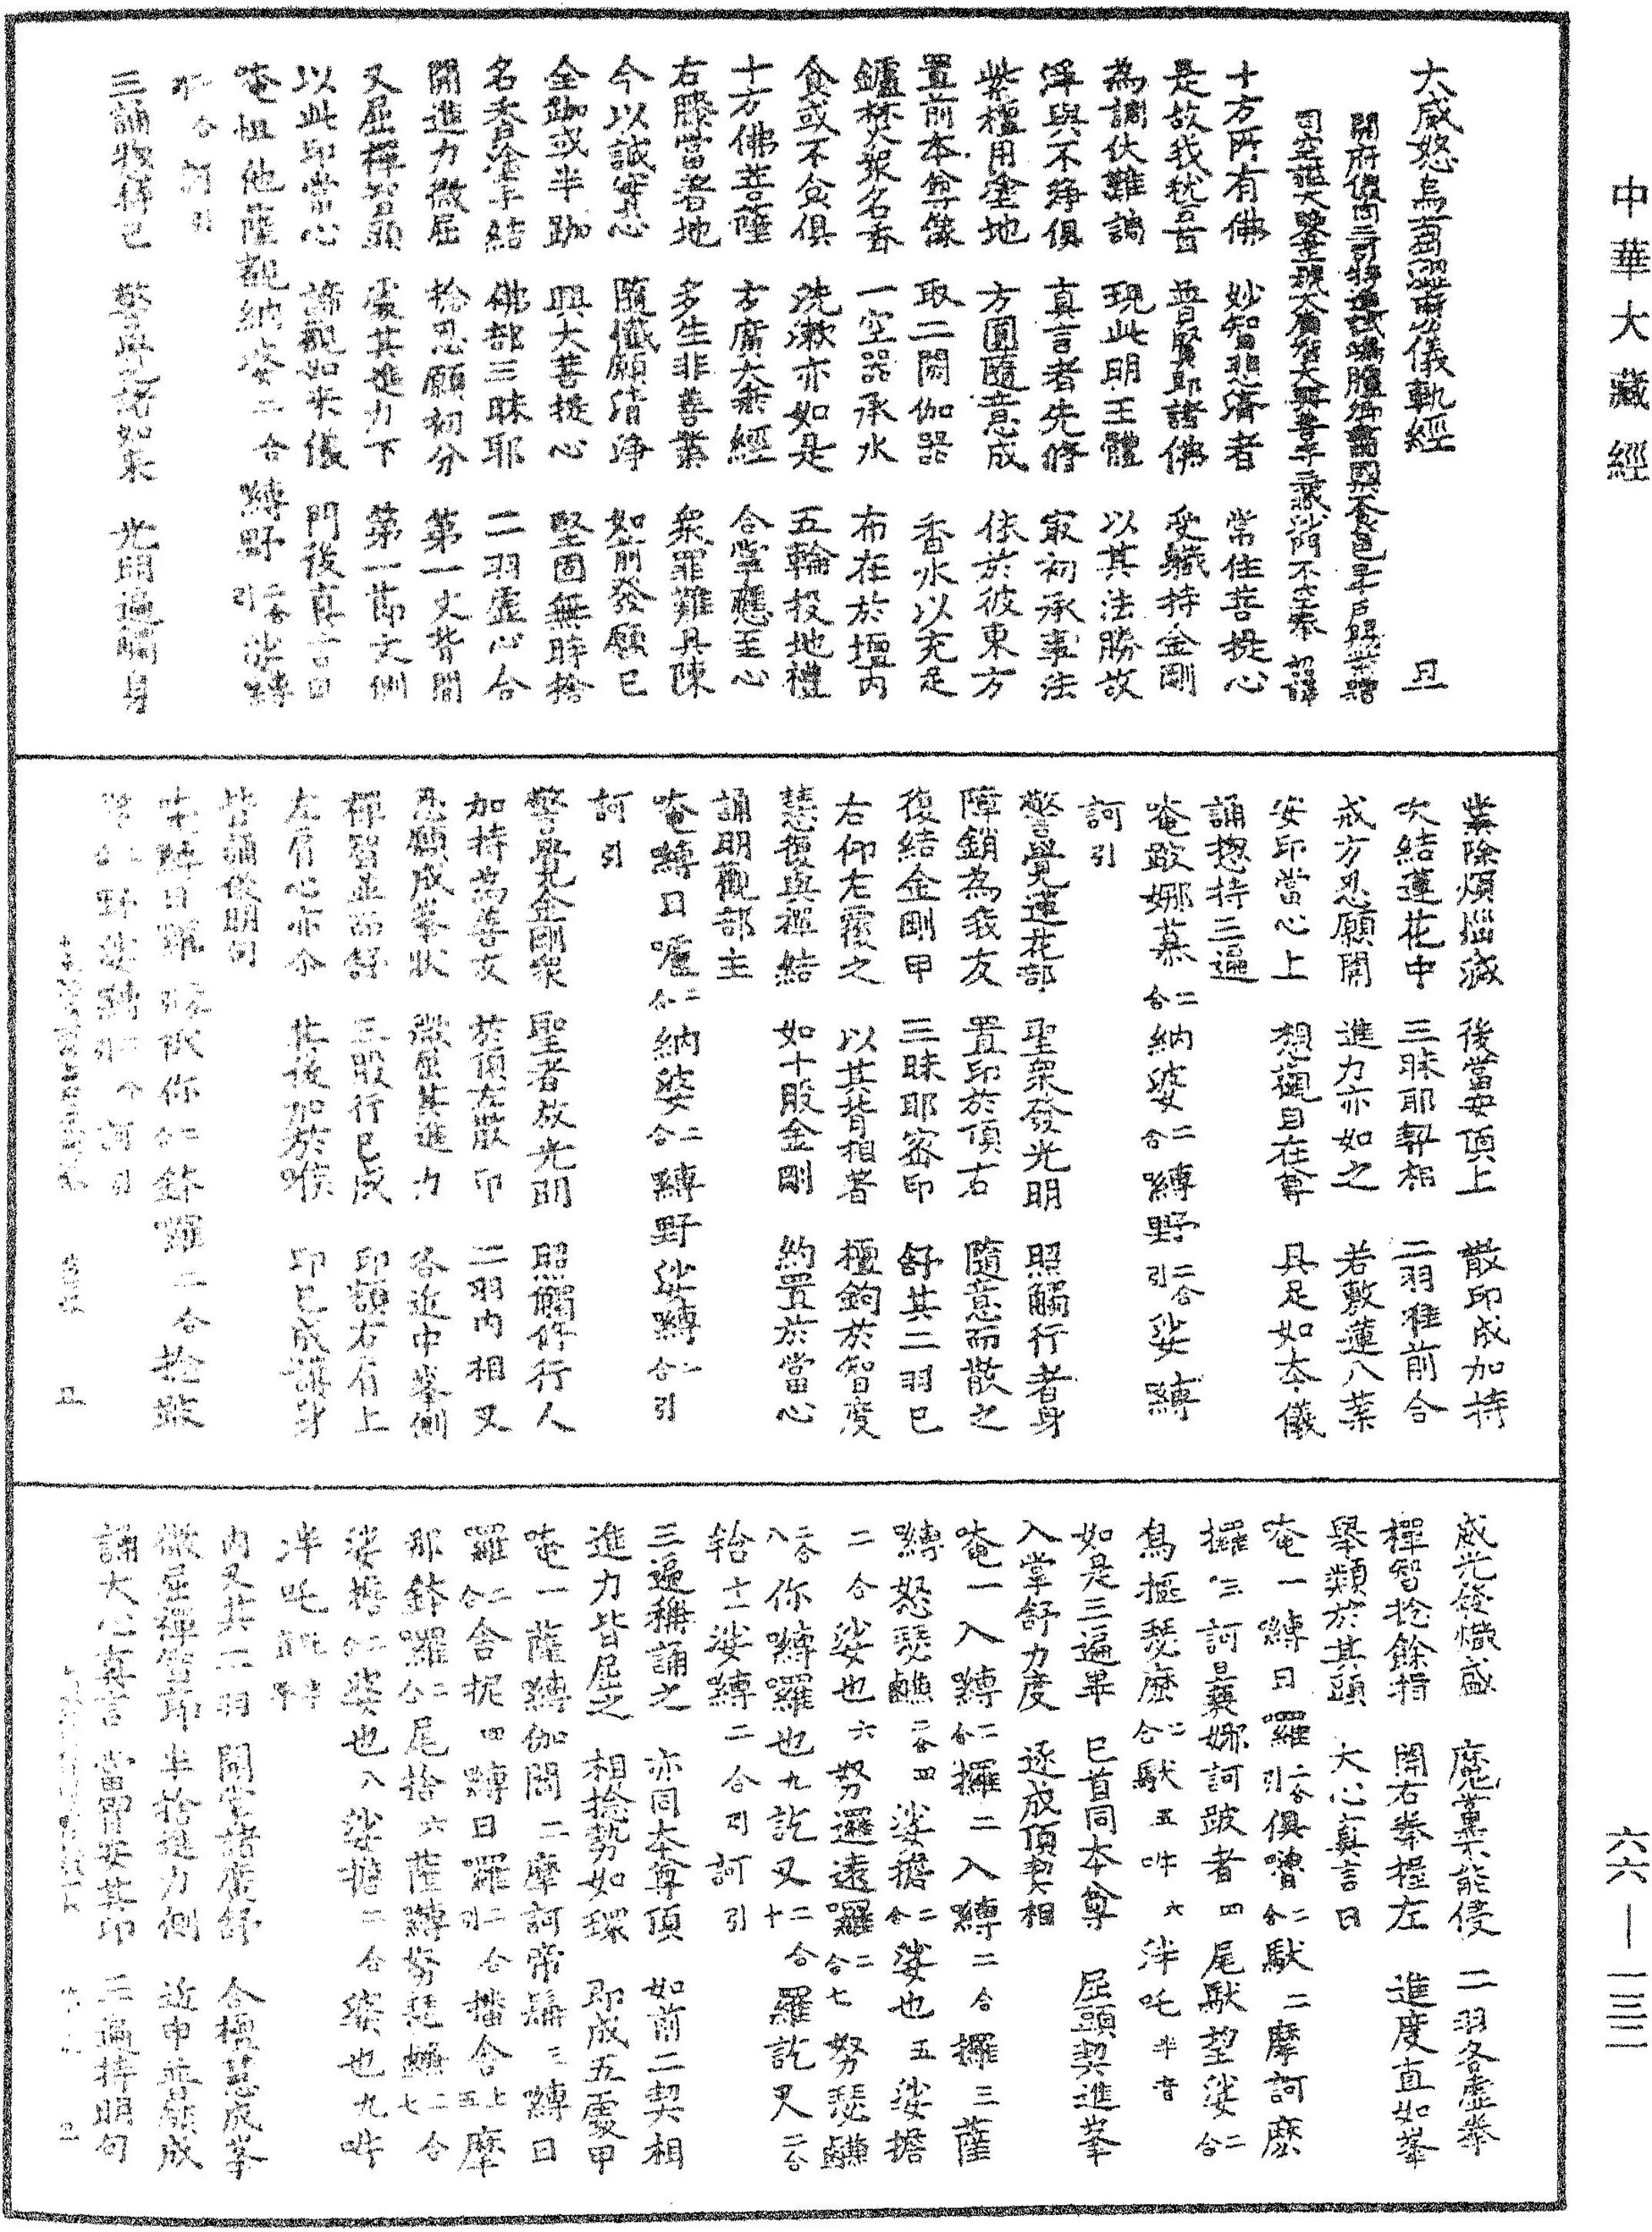 中華大藏經
大威怒烏芻澁麼儀軌經 丑
十方所有佛 妙智悲濟者 常住菩提心
是故我稽首 普賢即諸佛 受軄持金剛
為調伏難調 現此明王體 以其法勝故
淨與不淨俱 真言者先脩 㝡初承事法
紫檀用塗地 方圓隨意成 依於彼東方
置前本尊像 取二閼伽器 香水以充足
鑪杯眾名香 一空器承水 布在於壇內
食或不食俱 洗漱亦如是 五輪投地禮
十方佛菩薩 方廣大乘經 合掌應至心
右膝當著地 多生非善業 衆罪難具陳
今以誠實心 隨懺願清淨 如前發願已
全跏或半跏 興大菩提心 堅固無時捨
名香塗手結 佛部三昧耶 二羽虛心合
開進力微屈 捻忍願初分 第一文背間
又屈禪智頭 處其進力下 第一節文側
以此印當心 諦觀如來儀 門後真言曰
唵怛他薩覩納婆二合 嚩野二合引娑嚩
二合訶引
三誦加持已 警畢諸如來 光明遍觸身
業除煩惱滅 後當安頂上 散印成加持
次結蓮花中 三昧耶契相 二羽准前合
戒方忍願開 進力亦如之 若敷蓮八葉
安印當心上 想觀自在尊 具足如本儀
誦惣持三遍
唵跛娜慕二合納婆二合嚩野二合引娑嚩
訶引
警覺蓮花部 聖衆發光明 照觸行者身
障銷為我友 置印於頂右 隨意而散之
復結金剛甲 三昧耶密印 舒其二羽已
右仰左覆之 以其背相著 檀鉤於智度
慧復與禪結 如十股金剛 約置於當心
誦明觀部主
唵嚩日嚧二合納婆二合嚩野娑嚩二合引
訶引
警覺金剛衆 聖者放光明 照觸修行人
加持為善友 於頂左散印 二羽內相叉
忍願成峯狀 微屈其進力 各近中峯側
禪智並而舒 三股形已成 印額右肩上
左肩心亦尒 其後加於喉 印已成護身
皆誦後明句
威光發熾盛 魔黨不能侵 二羽各虛拳
禪智捻餘指 開右拳握左 進度直如峯
舉類於其頭 大心真言曰
唵一嚩日羅二合引俱嚕二合馱二摩訶麼
攞三訶曩娜訶跛者四尾馱望娑二合
烏摳瑟麼二合馱五吽六泮吒半音
如是三遍畢 已首同本尊 屈頭契進峯
入掌舒力度 逐成頂契相
唵一入嚩二合攞二入嚩二合攞三薩
嚩怒瑟鷦二合四娑擔二合娑也五娑擔
二合娑也六努邏遠囉二合七努瑟鷦
二合八你嚩囉也九訖叉二合十羅訖叉二合
䭾十一娑嚩二合引訶引
三遍稱誦之 亦同本尊頂 如前二契相
進力皆屈之 相捻勢如環 即成五處甲
唵一薩嚩伽閻二摩訶帝羂三嚩日
羅二合舍抳四嚩日羅二合引播舍上五摩
那鉢囉二合尾捨六薩嚩努瑟鷦二合七
娑擔二合娑也八娑擔二合娑也九吽
泮吒
內叉其二羽 開掌諸度舒 合檀慧成峯
微屈禪智節 半捨進力側 近申並願成
誦大心真言 當胷安其印 三遍持明句
六六—一三二